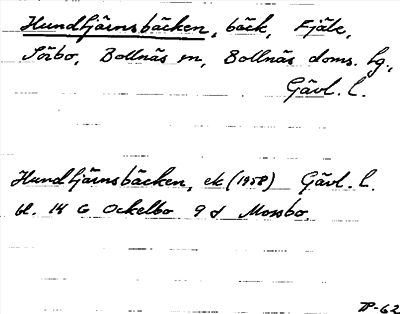 Hundtjärnsbäcken, bäck, Fjäle,
Sörbo, Bollnäs sn, Bollnäs doms. lg.,
Gävl. l.
Hundtjärnsbäcken, ek (1958) Gävl. l.
bl. 14 G Ockelbo 9 d Mossbo.
TP-62